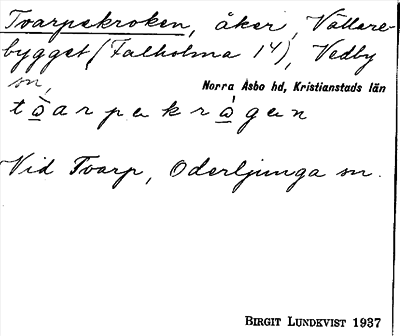 Toarpakroken, åker, Vällare-
bygget (Falholma 14), Vedby
sn,
Norra Åsbo hd, Kristianstads län
tòarpakrågen
Vid Toarp, Oderljunga sn.
BIRGIT LUNDKVIST 1937